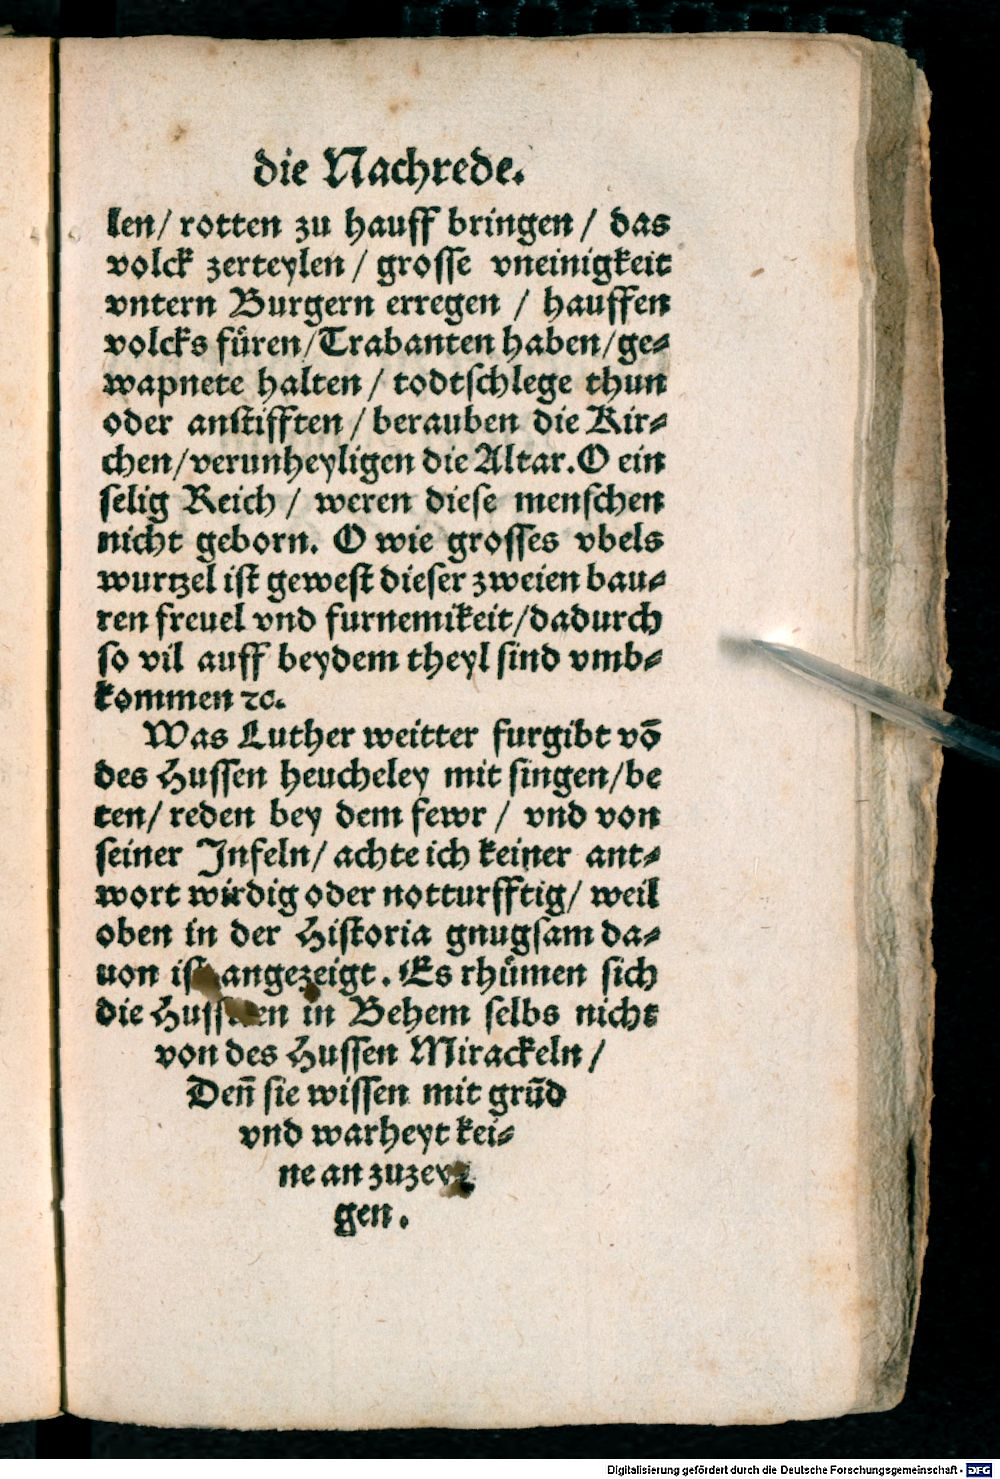 die Nachrede.
len/ rotten zu hauff bringen / das
volck zerteylen / grosse vneinigkeit
vntern Burgern erregen / hauffen
volcks fuͤren/Trabanten haben/ge⸗
wapnete halten / todtschlege thun
oder anstifften / berauben die Kir⸗
chen/verunheyligen die Altar.O ein
selig Reich / weren diese menschen
nicht geborn. O wie grosses vbels
wurtzel ist gewest dieser zweien bau⸗
ren freuel vnd furnemikeit/dadurch
so vil auff beydem theyl sind vmb⸗
kommen ꝛc.
Was Luther weitter furgibt võ
des Hussen heucheley mit singen/be
ten/ reden bey dem fewr / vnd von
seiner Infeln/ achte ich keiner ant⸗
wort wirdig oder notturfftig/ weil
oben in der Historia gnugsam da⸗
uon ist angezeigt. Es rhuͤmen sich
die in Behem selbs nicht
von des Hussen Mirackeln /
Den̄ sie wissen mit grūd
vnd warheyt kei⸗
ne an zuzey⸗
gen.
Digitalisierung gefördert durch die Deutsche Forschungsgemeinschaft - DFG